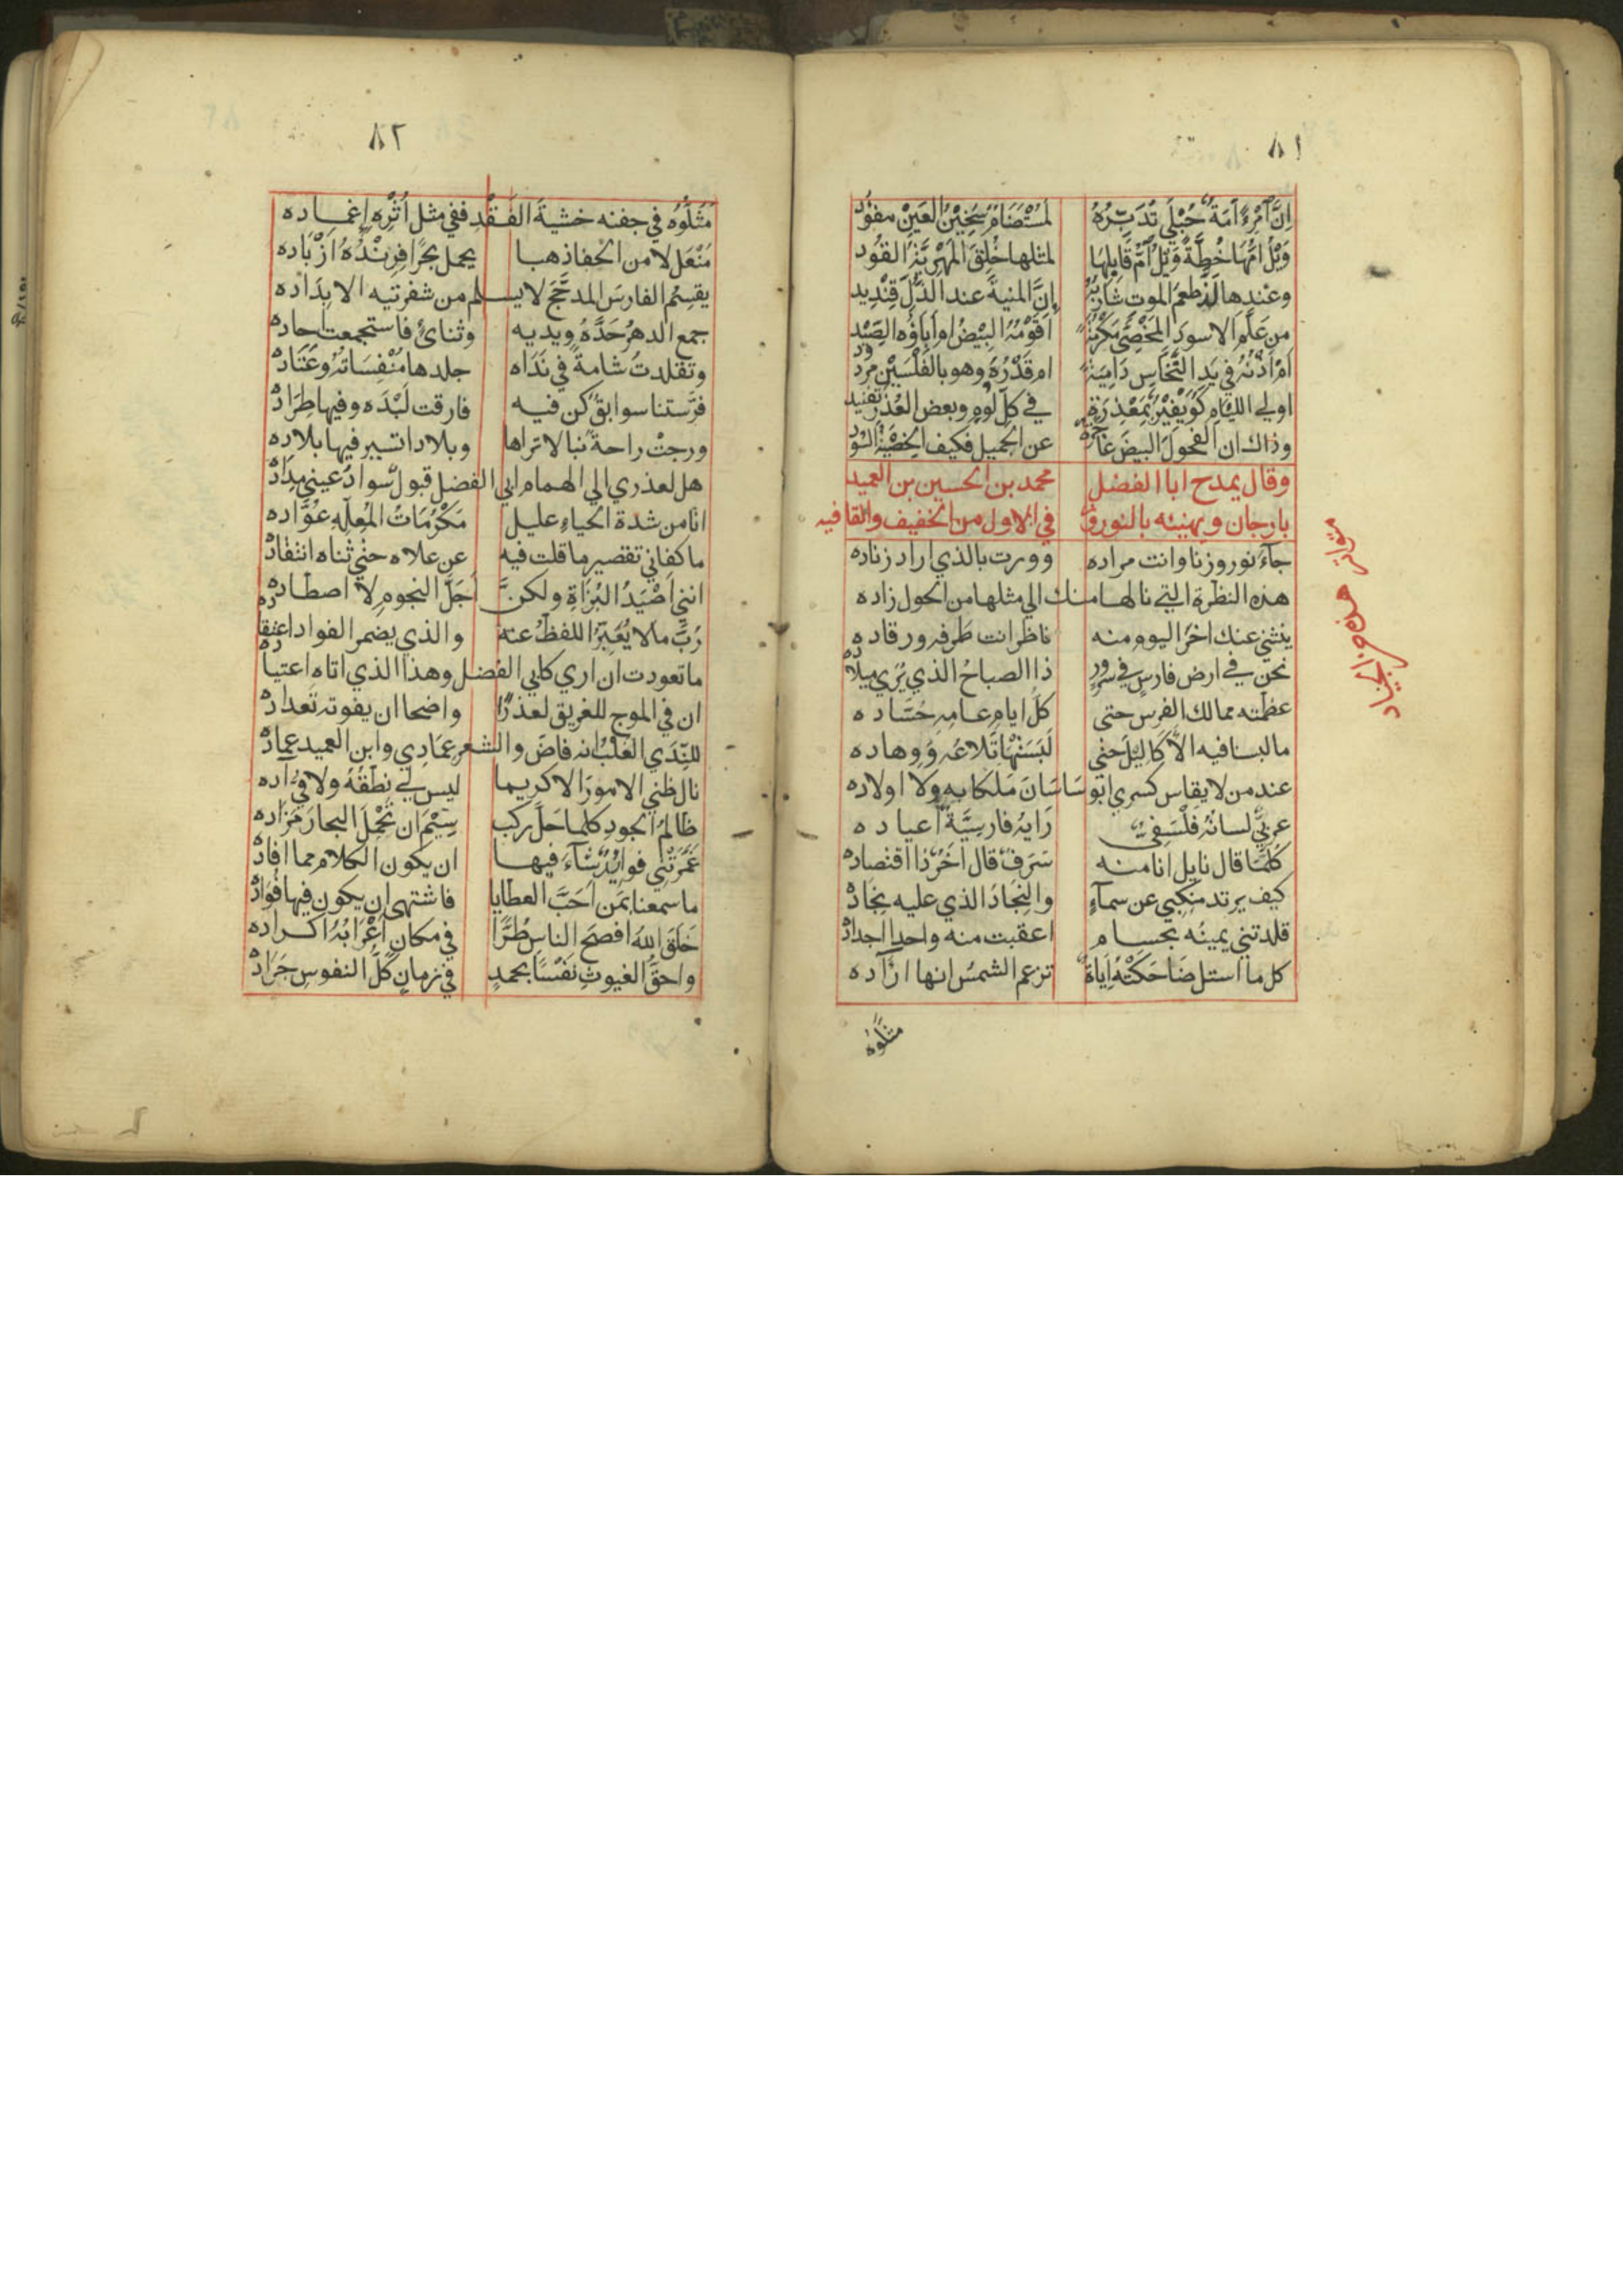 ٨١
اِنَّ اَمْرِءً اَمَةٌ حُبْلَي تُدَبِّرُهُ لَمُسْتَضَامٌ سَخِيْنُ العَيْنِ مفؤد
وَيْلُ امِّهَا خُطَّةً وَيْلُ اُمِّ قَابِلِهَا لمثلها خُلِقَ المَهْرِيَّةُ القُود
وعندها لذ طعمَ الموت شاربُهُ اِنَّ المنيةَ عند الذُّلِّ قِنْديد
من عَلَّمَ الاسودَ المَخْصِيَّ مَكْرُمَةً اَقَوْمُهُ البِيْضُ ام اَبَاؤُه الصِّيْد
اَمْ اُذْنُهُ في يَدِ النَّخَّاسِ دَامِيَةً ام قَدْرُهُ وهو بالفَلْسَيْنِ مردود
اولي اللئام كُوَيْفِيْرٌ بِمَعْذِرَةٍ في كلِّ لُومٍ وبعض العُذْرِ تفنيد
وذاك ان الفحولَ البيضَ عاجزة عن الجميل فكيف الخِصْيَةُ السُّود
وقال يمدح ابا الفضل محمد بن الحسين بن العميد
بارجان ويهنيئه بالنوروز في الاول من الخفيف والقافيه
متواتر
جآءَ نوروزنا وانت مراده وورت بالذي اراد زناده
هذه النظرة التي نالها منك الي مثلها من الحول زاده
ينثني عنك اخرَ اليوم منه ناظر انت طَرفه ورقاده
نحن في ارض فارسٍ في سرورٍ ذا الصباحُ الذي يُرَي ميلاده
عظمته ممالك الفرس حتى كلُّ ايامِ عامِهِ حُسّاده
ما لبسنا فيه الأكاليلَ حتي لَبَسَتْهَا تِلَاعُه وَوِهاده
عند من لا يقاس كسري ابو سَاسَانَ مَلكا به ولا اولاده
عربيٌّ لسانُهُ فَلْسَفِيٌّ رَايهُ فارسِيَّةٌ اعياده
كُلّمَا قال نايل انا منه سَرَفٌ قال اخَرٌ ذا اقتصاده
كيف يرتد مَنكِبي عن سمآءٍ والنِجَادُ الذي عليه نِجَاده
قلدتني يمينُه بحسام اعقبت منه واحدا اجداده
كل ما استل ضَاحَكَتْهُ اِياةٌ تزعم الشمسُ انها ارآده
مثّلوه
٨٢
مَثَّلُوْه في جفنه خشيةَ الفَقْدِ ففي مثل اَثْرِهِ اِغماده
مُنْعَل لا من الحَفا ذهبا يحمل بحرًا فِرِنْدُهُ اَزْبَاده
يقسِمُ الفارسَ المدجَّجَ لا يسلم من شفرتيه الا بِدَاده
جمع الدهرُ حَدَّهُ ويديه وثنائي فاستجمعت احاده
وتقلدتُ شامةً في نَدَاه جلدها مُنْفِسَاتُهُ وعَتَاده
فرَّستنا سوابقٌ كن فيه فارقت لَبْدَه وفيها طِرَاده
ورجتْ راحةً بنا لا تراها وبلاد اتسير فيها بلاده
هل لعذري الي الهمام ابي الفضل قبولٌ سوادُ عيني مِدَاده
انا من شدة الحياءِ عليل مَكْرُمَاتُ المُعِلِّهِ عُوَّاده
ما كفاني تقصير ما قلت فيه عن علاه حتي ثناه انتقاده
انني اَصْيَدُ البُزَاةِ ولكنَّ اَجَلَّ النجومِ لا اصطاده
رُبَّ ما لا يُعَبِّرُ اللفظُ عنه والذي يضمر الفواد اعتقاده
ما تعودت ان اري كابي الفضل وهذا الذي اتاه اعتياده
ان في الموج للغريق لعذرًا واضحا ان يفوته تَعداده
للنَّدَي الغَلْبُ انه فاضَ والشعر عِمَادِي وابن العميد عِمَاده
نال ظني الامورَ الا كريما ليس لي نطقُهُ ولا فيَّ اده
ظالمُ الجودِ كلما حَلَّ ركب سِيْمَ ان تَحْمِلَ البحارَ مَزَاده
غَمَرَتْنِي فوائِدٌ شآءَ فيها ان يكون الكلام مما افاده
ما سمعنا بمَن اَحَبَّ العطايا فاشتهي ان يكون فيها فُوَاده
خَلَقَ اللهُ افصحَ الناس طُرًّا في مكانٍ اَعْرَابُهُ اكراده
واحقَّ الغيوثِ نَفْسًا بحمدٍ في زمانٍ كلُّ النفوس جَرَاده